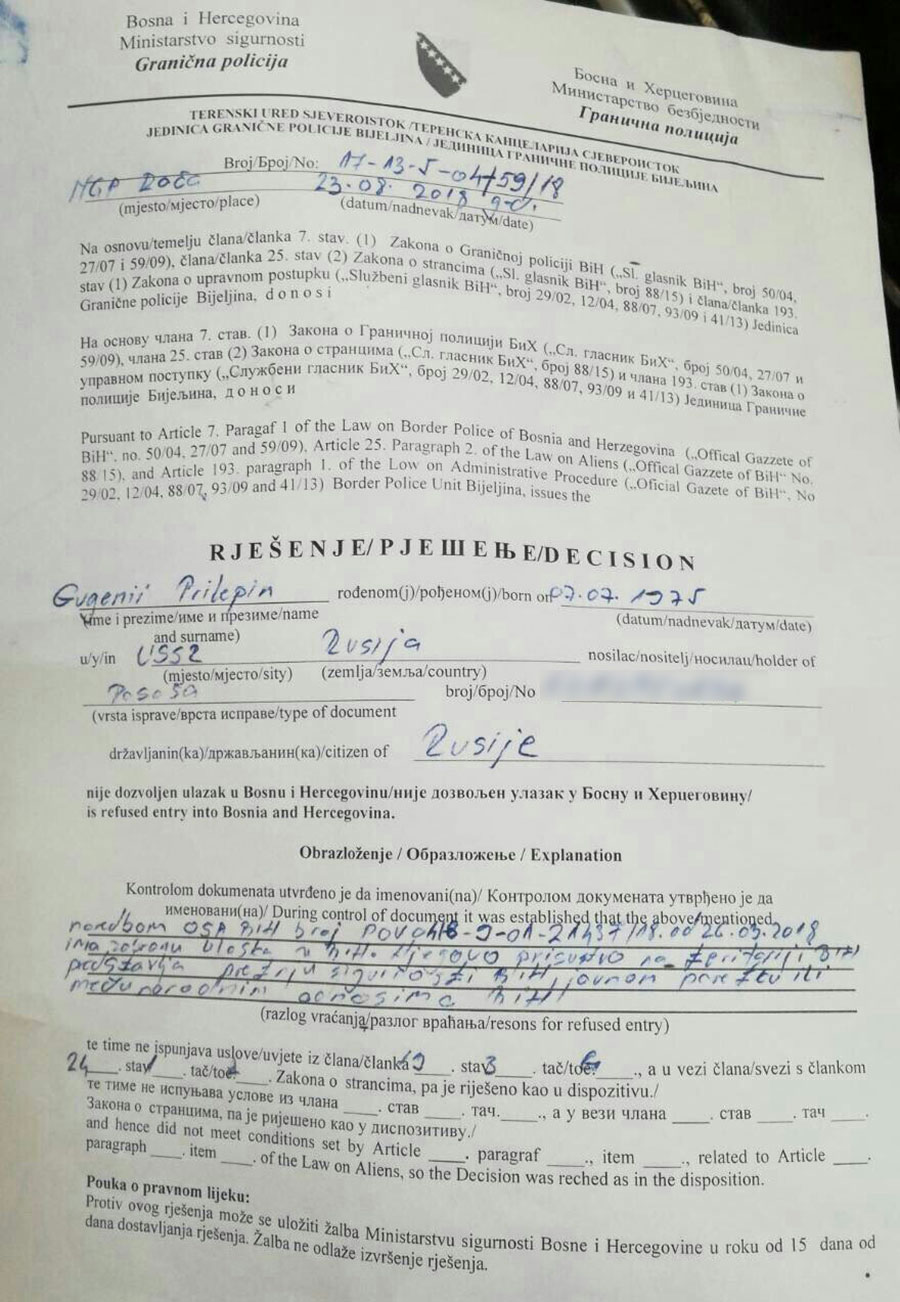 Bosna i Hercegovina
Ministarstvo sigurnosti
Granična policija
Босна и Херцеговина
Министарство безбједности
Гранична полиција
TERENSKI URED SJEVEROISTOK /ТЕРЕНСКА КАНЦЕЛАРИЈА СЈЕВЕРОИСТОК
JEDINICA GRANIČNE POLICIJE BIJELJINA / ЈЕДИНИЦА ГРАНИЧНЕ ПОЛИЦИЈЕ БИЈЕЉИНА
Broj/Број/No: 17-13-5-04/59/18
23.08. 2018
(mjesto/мјесто/place)
(datum/nadnevak/датум/date)
Na osnovu/temelju člana/članka 7. stav. (1) Zakona o Graničnoj policiji BiH („Sl. glasnik BiH“, broj 50/04,
27/07 i 59/09), člana/članka 25. stav (2) Zakona o strancima („Sl. glasnik BiH“, broj 88/15) i člana/članka 193.
stav (1) Zakona o upravnom postupku („Službeni glasnik BiH“, broj 29/02, 12/04, 88/07, 93/09 i 41/13) Jedinica
Granične policije Bijeljina, d o n o s i
На основу члана 7. став. (1) Закона о Граничној полицији БиХ („Сл. гласник БиХ“, број 50/04, 27/07 и
59/09), члана 25. став (2) Закона о странцима („Сл. гласник БиХ“, број 88/15) и члана 193. став (1) Закона о
управном поступку („Службени гласник БиХ“, број 29/02, 12/04, 88/07, 93/09 и 41/13) Јединица Граничне
полиције Бијељина, д о н о с и
Pursuant to Article 7. Paragaf 1 of the Law on Border Police of Bosnia and Herzegovina („Offical Gazzete of
BiH“, no. 50/04, 27/07 and 59/09), Article 25. Paragraph 2. of the Law on Aliens („Offical Gazzete of BiH“ No.
88/15), and Article 193. paragraph 1. of the Low on Administrative Procedure („Oficial Gazete of BiH“, No
29/02, 12/04, 88/07, 93/09 and 41/13) Border Police Unit Bijeljina, issues the
RJEŠENJE/РЈЕШЕЊЕ/DECISION
Evgenii Prilepin rođenom(j)/рођеном(ј)/born on 07.07. 1975
ime i prezime/име и презиме/name
and surname)
(datum/nadnevak/датум/date)
u/y/in USSR Rusija nosilac/nositelj/носилац/holder of
(mjesto/мјесто/sity) (zemlja/земља/country)
Pasoša broj/број/No
(vrsta isprave/врста исправе/type of document
državljanin(ka)/држављанин(ка)/citizen of Rusije
nije dozvoljen ulazak u Bosnu i Hercegovinu/није дозвољен улазак у Босну и Херцеговину/
is refused entry into Bosnia and Hercegovina.
Obrazloženje / Образложење / Explanation
Kontrolom dokumenata utvrđeno je da imenovani(na)/ Контролом докумената утврђено је да
именовани(на)/ During control of document it was established that the above/mentioned
naredbom OSA BiH broj 26.03.2018
ima zabranu ulaska u BiH. Njegovo prisustvo na teritoriji BiH
predstavlja prijetnju sigurnosti BiH, javnom poretku ili
međunarodnim odnosima BiH
(razlog vraćanja/разлог враћања/resons for refused entry)
te time ne ispunjava uslove/uvjete iz člana/članka 19 stav 3 tač/toč. ., a u vezi člana/svezi s člankom
24 . stav 1 . tač/toč. . Zakona o strancima, pa je riješeno kao u dispozitivu./
те тиме не испуњава услове из члана ____. став ____. тач.____., а у вези члана ____. став ____. тач ____.
Закона о странцима, па је ријешено као у диспозитиву./
and hence did not meet conditions set by Article ____. paragraf ____., item ____., related to Article ____.
paragraph ____. item ____. of the Law on Aliens, so the Decision was reched as in the disposition.
Pouka o pravnom lijeku:
Protiv ovog rješenja može se uložiti žalba Ministarstvu sigurnosti Bosne i Hercegovine u roku od 15 dana od
dana dostavljanja rješenja. Žalba ne odlaže izvršenje rješenja.